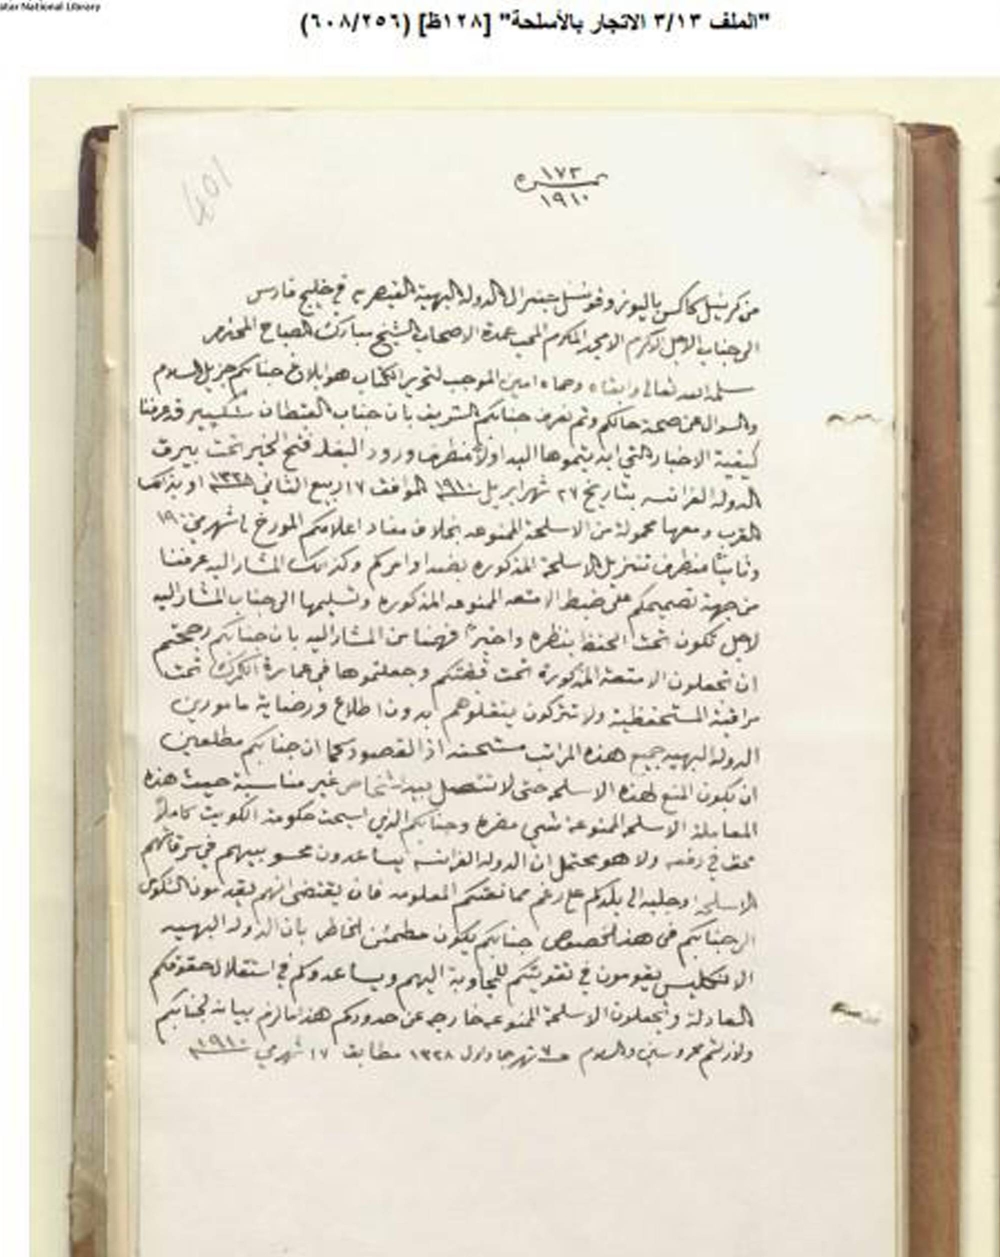 atar National Library
"الملف ٣/١٣ الاتجار بالأسلحة" [١٢٨ظ] (٦٠٨/٢٥٦)
401
نمره ١٧٣
١٩١٠
من كرنيل كاكس باليوز وقونسل جنرال الدولة البهية القيصرية في خليج فارس
الى جناب الاجل الاكرم الامجد المكرم المحب عمدة الاصحاب الشيخ مبارك الصباح المحترم
سلمه الله تعالى وابقاه وحماه امين الموجب لتحرير الكتاب هو ابلاغ جنابكم جزيل السلام
والسوال عن صحة حالكم وثم نعرف جنابكم الشريف بان جناب القبطان شكسپير قد عرفنا
كيفية الاخبار التي ابديتموها اليه اولاً منطرف ورود البغله فتح الخير تحت بيرق
الدوله الفرانسه بتاريخ ٢٧ شهر ابريل ١٩١٠ الموافق ١٧ ربيع الثاني ١٣٢٨ او بذلك
القرب ومعها محمولة من الاسلحة الممنوعه بخلاف مفاد اعلامكم المورخ شهر ١٩٠٠
وثانياً منطرف تنزيل الاسلحة المذكوره بضد اوامركم وكذلك المشار اليه عرفنا
من جهة تصميمكم على ضبط الامتعه الممنوعه المذكوره وتسليمها الى جناب المشار اليه
لاجل تكون تحت الحفظ بنظره واخيراً فهمنا من المشار اليه بان جنابكم رجحتم
ان تجعلون الامتعة المذكورة تحت قبضتكم وجعلتموها في عمارة الكمرك تحت
مراقبة المستحفظية ولا تتركون ينقلوهم بدون اطلاع ورضاية مامورين
الدوله البهيه جميع هذه المراتب مستحسنه اذ المقصود كما ان جنابكم مطلعين
ان يكون المنع لهذه الاسلحه حتى لا تتصل بيد اشخاص غير مناسبة حيث هذه
المعاملة الاسلحه الممنوعة شي مضره وجنابكم الذي اسست حكومة الكويت كاملاً
محق في رفعه ولا هو محتمل ان الدوله الفرانسه يساعدون محسوبيهم في سرقاتهم
الاسلحه وجلبه الى بلدكم على رغم ممانعتكم المعلومه فان يقتضى انهم يقدمون الشكوى
الى جنابكم في هذا الخصوص جنابكم يكون مطمئن الخاطر بان الدوله البهيه
الانكليس يقومون في تقويتكم للجاوبة اليهم ويساعدوكم في استقلال حقوقكم
العادلة وتجعلون الاسلحة الممنوعه خارجه عن حدودكم هذا ما لزم بيانه لجنابكم
ولازلتم محروسين والسلام شهر جماد اول ١٣٢٨ مطابق ١٧ شهر مي ١٩١٠